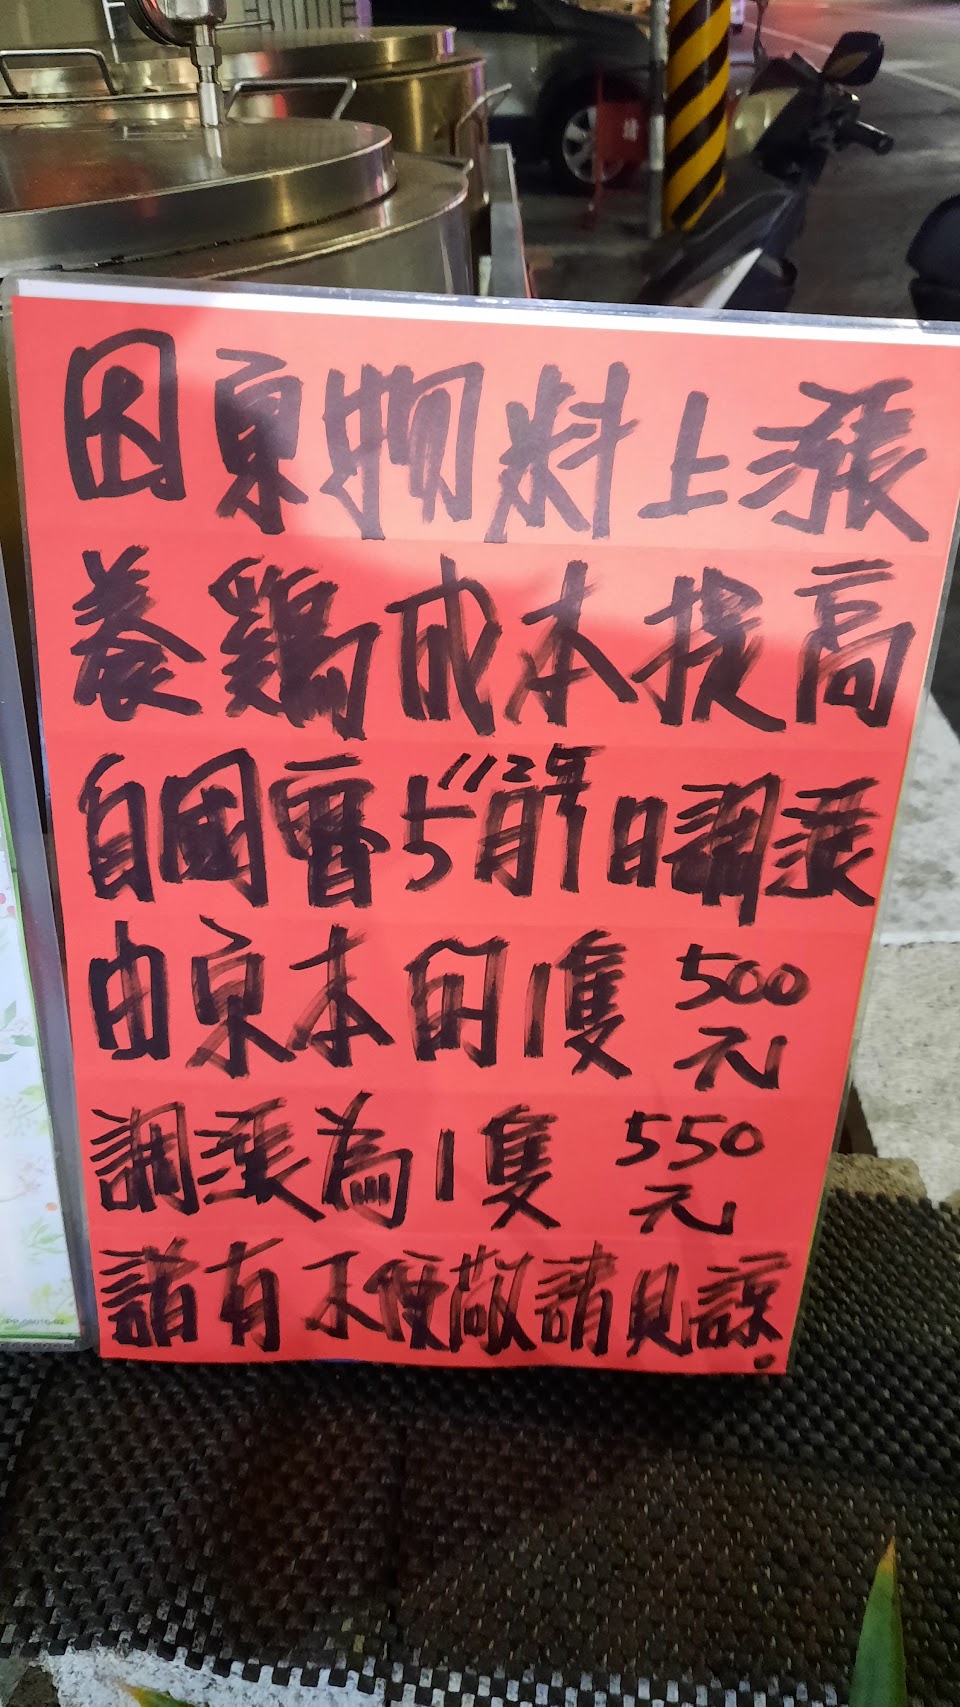 因原物料上漲
養鷄成本提高
112年
自國曆5月1日調漲
由原本的1隻500元
調漲為1隻550元
諸有不便敬請見諒.